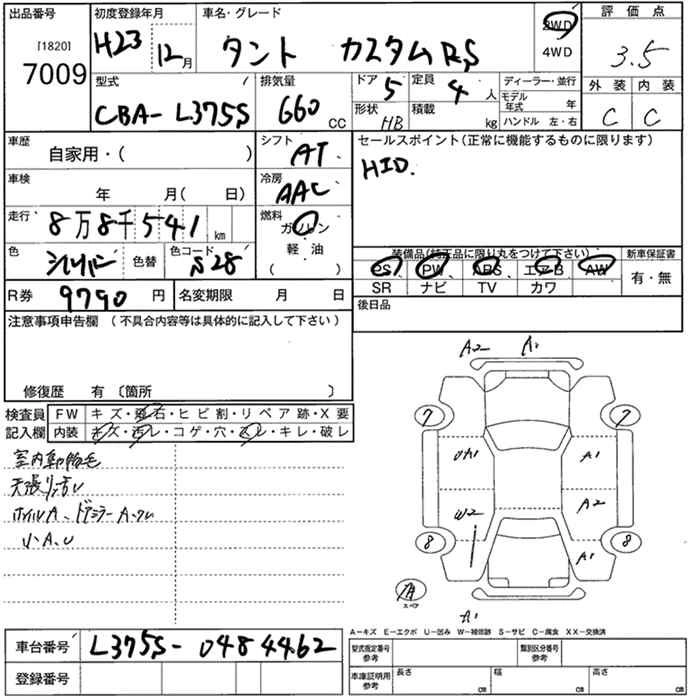 出品番号 初度登録年月 車名・グレード 2WD 評価点
[1820] H23 12月 タント カスタムRS 4WD 3.5
7009
型式 排気量 ドア 5 定員 4人 ディーラー・並行 外装 内装
CBA-L375S 660cc 形状 HB 積載 kg モデル年式 年 C C
ハンドル 左・右
車歴 自家用・( ) シフト AT セールスポイント(正常に機能するものに限ります)
車検 年 月( 日) 冷房 AAC HID.
走行 8万8千541km 燃料 ガソリン
軽・油
( )
色 シルバー 色替 色コード S28 装備品(純正品に限り丸をつけて下さい) 新車保証書
PS PW ABS エアB AW 有・無
R券 9790円 名変期限 月 日 SR ナビ TV カワ
後日品
注意事項申告欄(不具合内容等は具体的に記入して下さい)
修復歴 有〔箇所 〕
検査員 FW キズ・飛石・ヒビ割・リペア跡・X要
記入欄 内装 キズ・汚レ・コゲ・穴・スレ・キレ・破レ
室内動物毛
天張り汚レ
ホイルA、ドアミラーA、ワレ
小A、U
A2 A1
7 7
UA1 A1
W2 A2
8 8
A1
7A
スペア
A1
A-キズ E-エクボ U-凹み W-補修跡 S-サビ C-腐食 XX-交換済
車台番号 L375S-0484462
登録番号
型式指定番号 参考 類別区分番号 参考
車庫証明用 参考 長さ cm 幅 cm 高さ cm